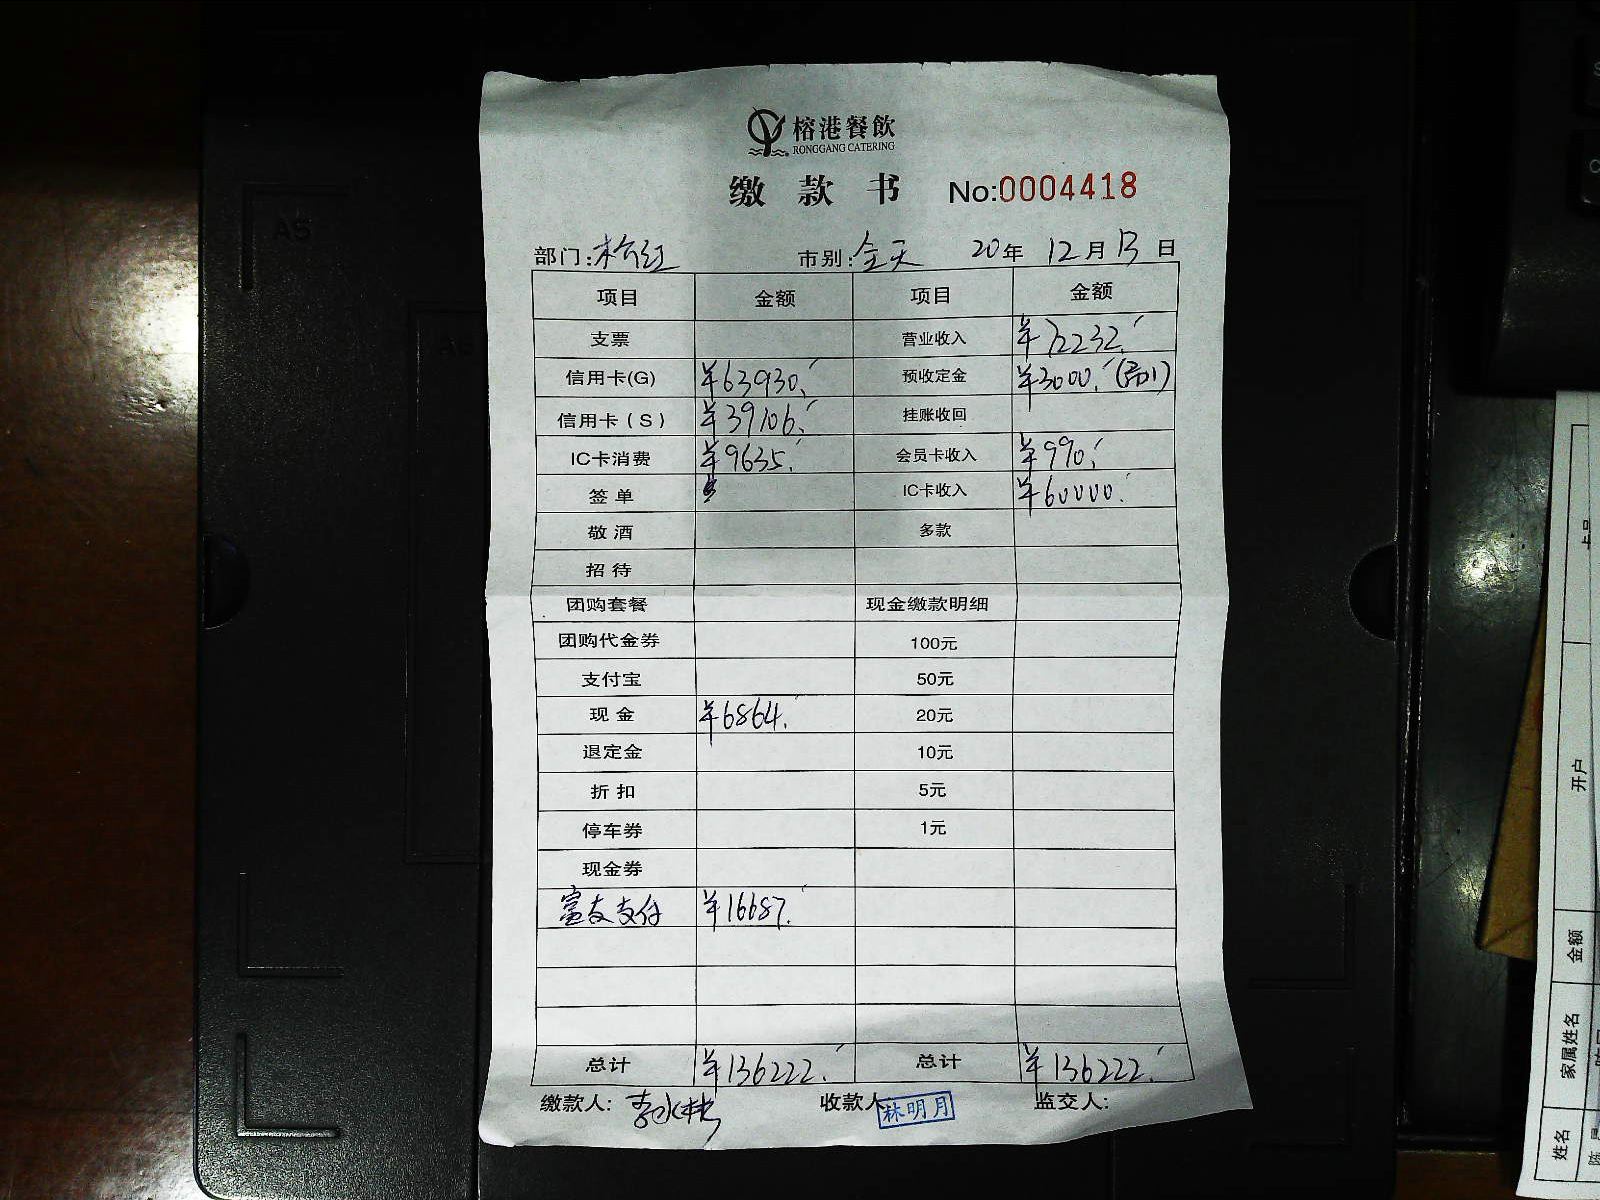 榕港餐飲
RONGGANG CATERING
缴款书 No:0004418
部门: 市别:全天 20年 12月13日
项目 金额 项目 金额
支票 营业收入 ¥72232.
信用卡(G) ¥63930. 预收定金 ¥3000.
信用卡(S) ¥39106. 挂账收回
IC卡消费 ¥9635. 会员卡收入 ¥990.
签单 IC卡收入 ¥60000.
敬酒 多款
招待
团购套餐 现金缴款明细
团购代金券 100元
支付宝 50元
现金 ¥6864. 20元
退定金 10元
折扣 5元
停车券 1元
现金券
富友支付 ¥16687.
总计 ¥136222. 总计 ¥136222.
缴款人: 收款人 林明月 监交人:
A5
卡号
开户
金额
家属姓名
姓名